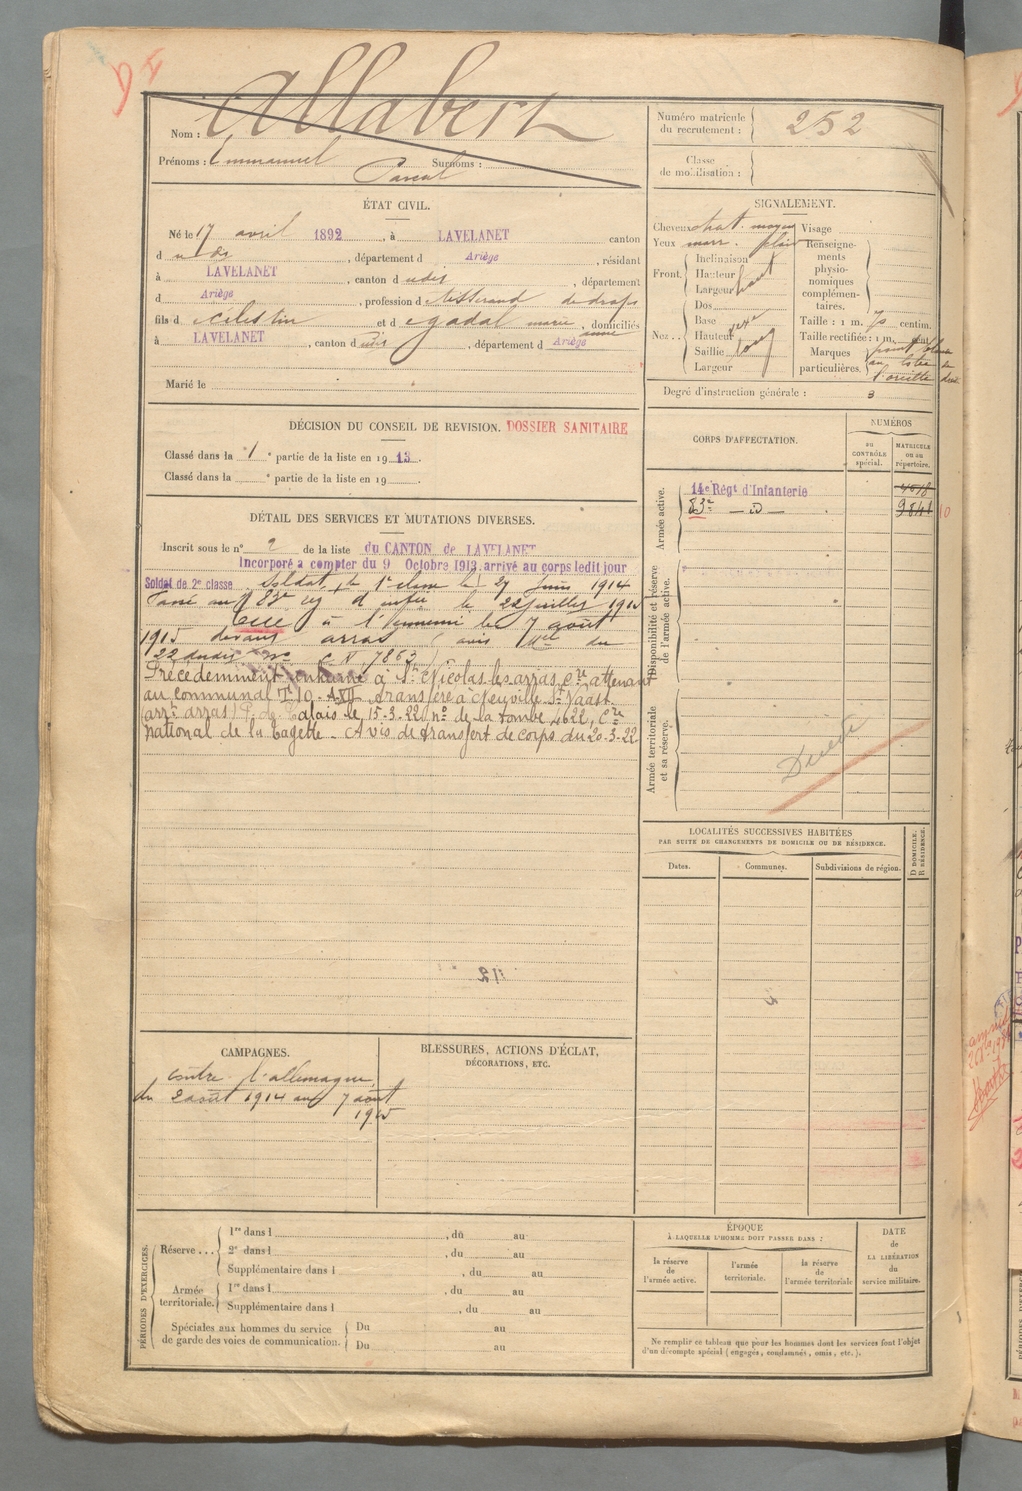 Nom : Allabert
Prénoms : Emmanuel Pascal Surnoms :
Numéro matricule du recrutement : 252
Classe de mobilisation :
ÉTAT CIVIL.
Né le 17 avril 1892, à LAVELANET canton
d udis, département d Ariège, résidant
à LAVELANET, canton d udis, département
d Ariège, profession d tisserand de draps
fils d Célestin et d Gadal marie anne, domiciliés
à LAVELANET, canton d udis, département d Ariège
Marié le
SIGNALEMENT.
Cheveux chat. moyen Visage
Yeux marr.
Front. Inclinaison
Hauteur haut
Largeur
Nez.. Dos
Base
Hauteur
Saillie long
Largeur
Renseignements physionomiques complémentaires.
Taille : 1 m. 70 centim.
Taille rectifiée : 1 m. cent.
Marques particulières.
l'oreille
Degré d'instruction générale : 3
DÉCISION DU CONSEIL DE REVISION. DOSSIER SANITAIRE
Classé dans la 1e partie de la liste en 1913.
Classé dans la e partie de la liste en 19 .
CORPS D'AFFECTATION.
NUMÉROS
au CONTRÔLE spécial.
MATRICULE ou au répertoire.
Armée active.
14e Régt d'Infanterie 4518
83e — d° — 9841
Disponibilité et réserve de l'armée active.
Armée territoriale et sa réserve.
Décédé
DÉTAIL DES SERVICES ET MUTATIONS DIVERSES.
Inscrit sous le n° 2 de la liste du CANTON de LAVELANET
Incorporé à compter du 9 Octobre 1913, arrivé au corps ledit jour
Soldat de 2e classe Soldat de 1e classe le 27 Juin 1914
Passé au 83e rég d'infie le 22 juillet 1915
Tué à l'ennemi le 7 août
1915 devant arras (avis Mel du
22 dudit C N 7863)
Précédemment inhumé à St Nicolas les arras, Cre attenant
au communal T 10. AXII transféré à Neuville St Vaast
(arrt arras) P. de Calais le 15-3-22 n° de la tombe 4622, Cre
National de la Targette - Avis de transfert de Corps du 20-3-22
LOCALITÉS SUCCESSIVES HABITÉES
PAR SUITE DE CHANGEMENTS DE DOMICILE OU DE RÉSIDENCE.
Dates. Communes. Subdivisions de région. D DOMICILE. R RÉSIDENCE.
CAMPAGNES.
contre l'allemagne
du 2 août 1914 au 7 août
1915
BLESSURES, ACTIONS D'ÉCLAT,
DÉCORATIONS, ETC.
PÉRIODES D'EXERCICES.
Réserve... 1re dans l , du au
2e dans l , du au
Supplémentaire dans l , du au
Armée territoriale. 1re dans l , du au
Supplémentaire dans l , du au
Spéciales aux hommes du service de garde des voies de communication. Du au
Du au
ÉPOQUE
À LAQUELLE L'HOMME DOIT PASSER DANS :
la réserve de l'armée active.
l'armée territoriale.
la réserve de l'armée territoriale
DATE de LA LIBÉRATION du service militaire.
Ne remplir ce tableau que pour les hommes dont les services font l'objet
d'un décompte spécial (engagés, condamnés, omis, etc.).